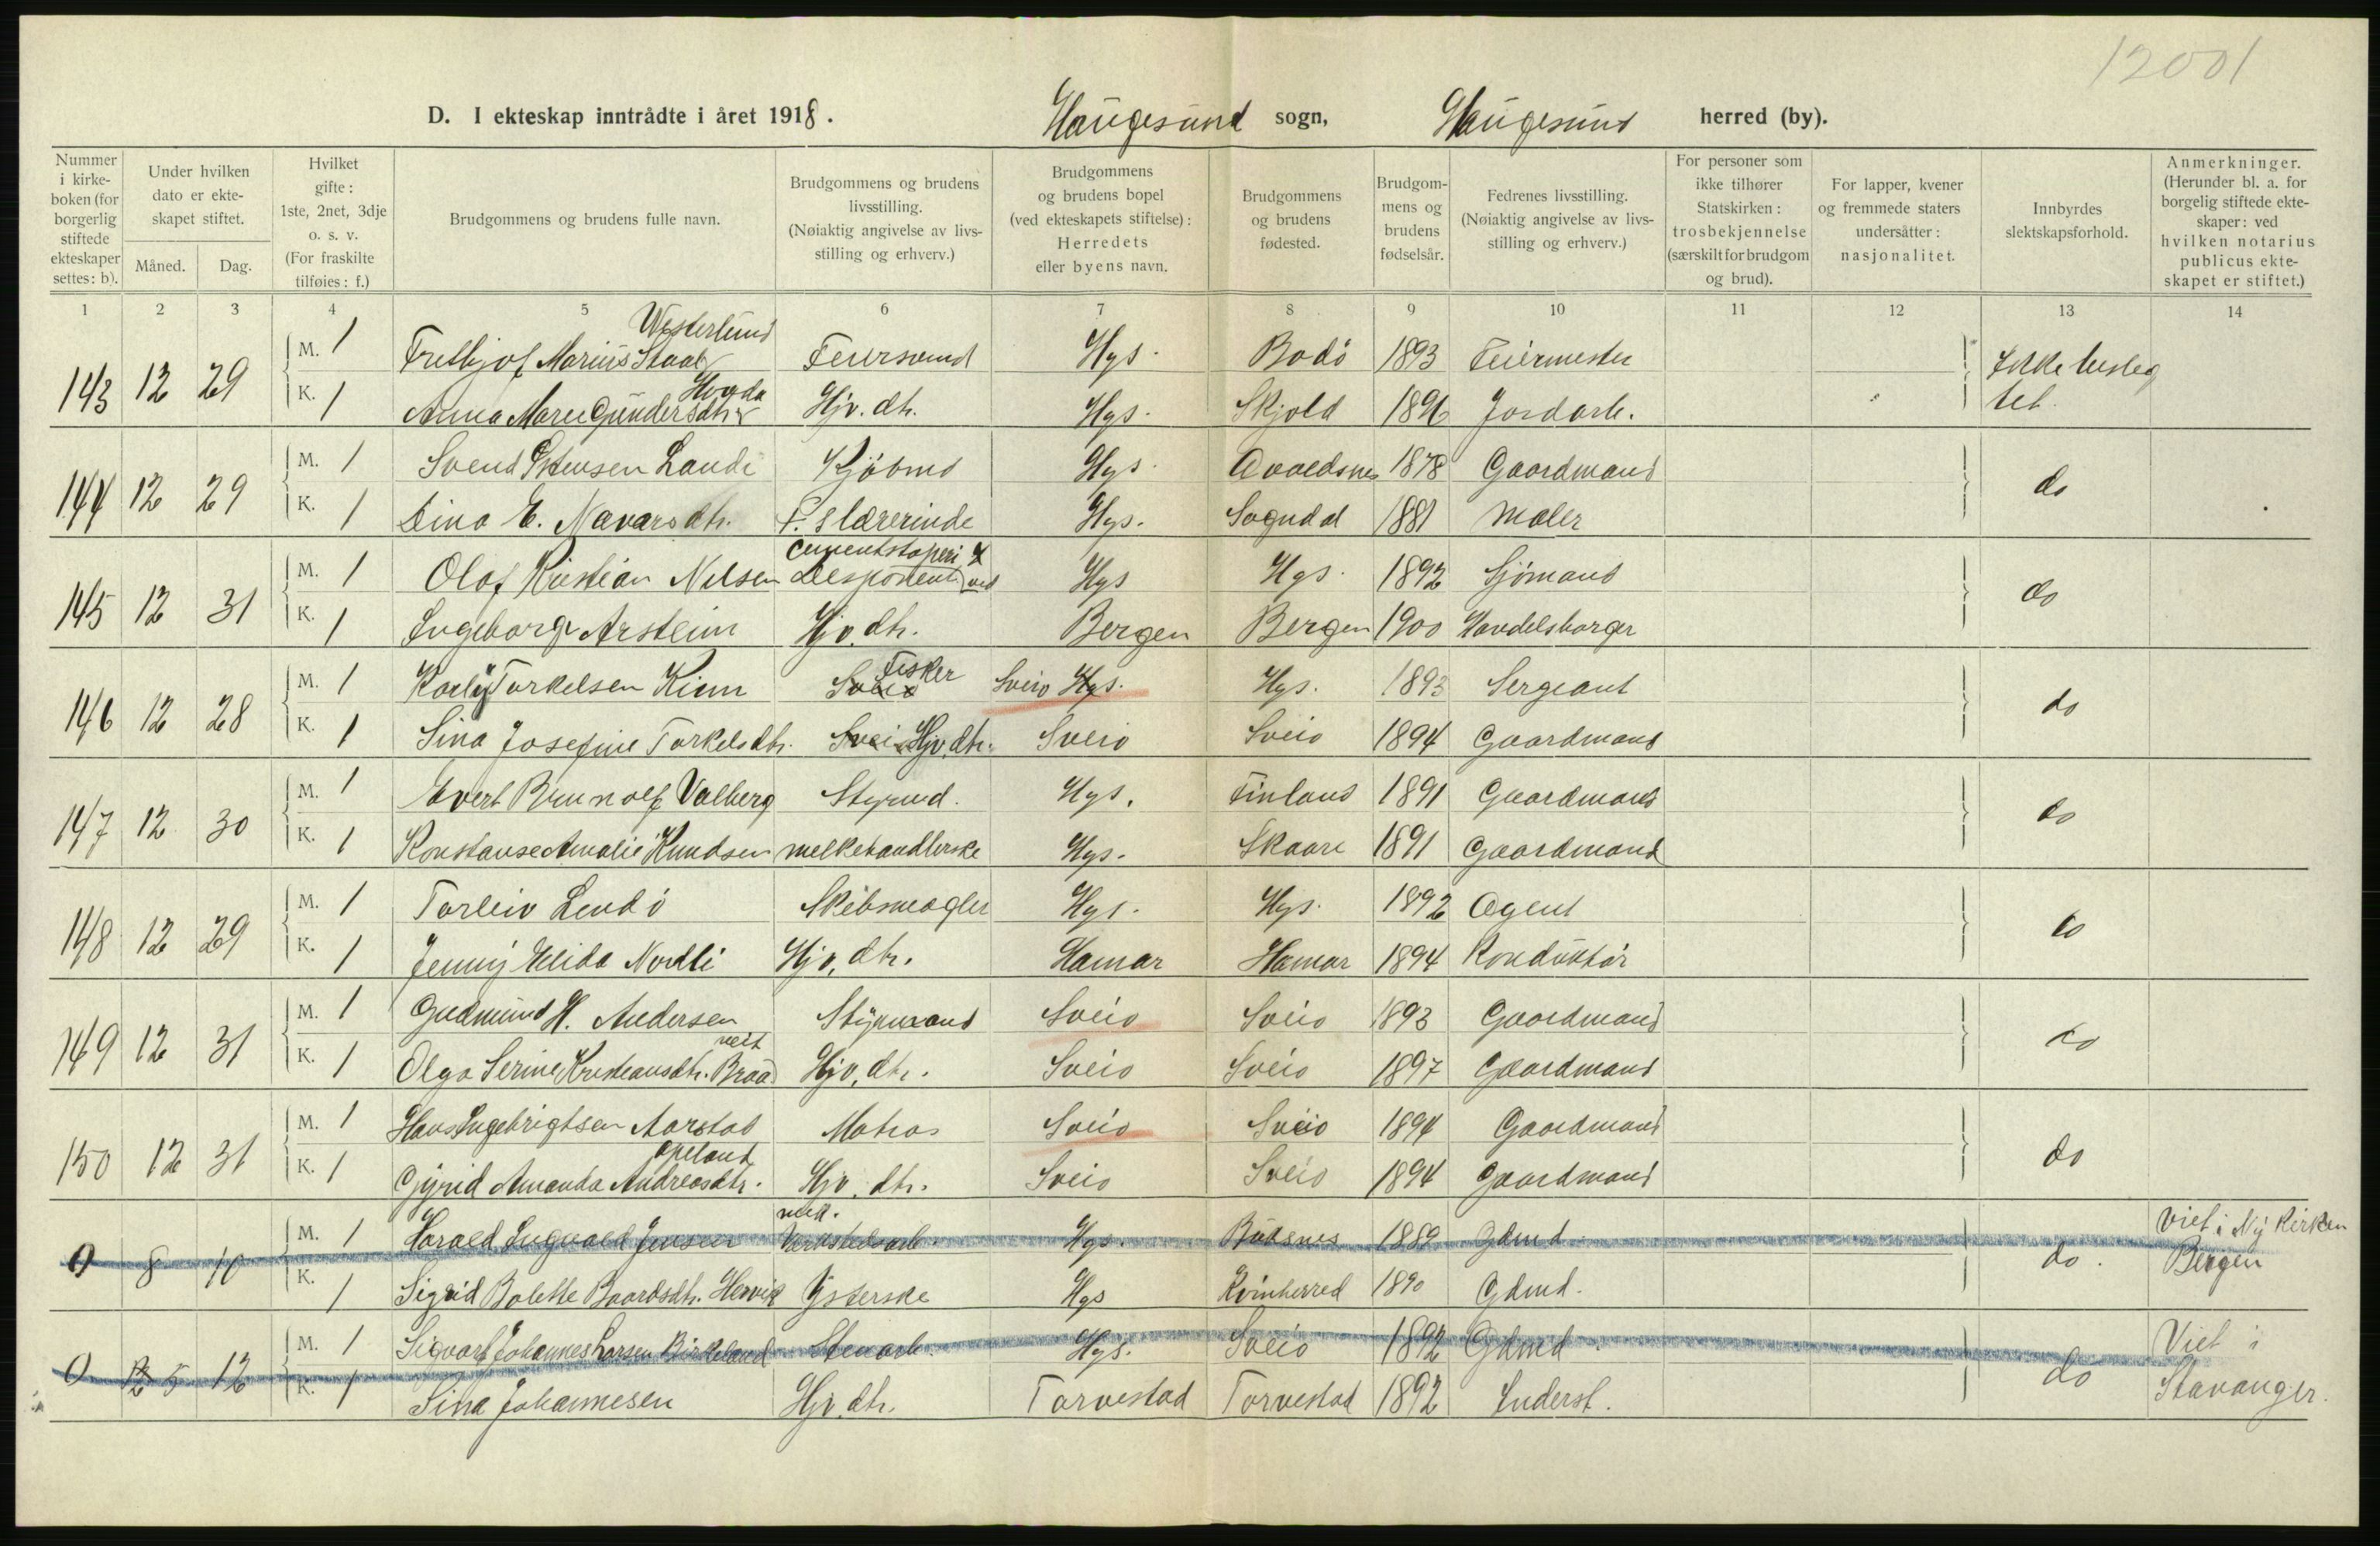 12001
D. I ekteskap inntrådte i året 1918. Haugesund sogn, Haugesund herred (by).
Nummer i kirkeboken (for borgerlig stiftede ekteskaper settes: b).
Under hvilken dato er ekteskapet stiftet.
Måned. Dag.
Hvilket gifte: 1ste, 2net, 3dje o. s. v. (For fraskilte tilføies: f.)
Brudgommens og brudens fulle navn.
Brudgommens og brudens livsstilling. (Nøiaktig angivelse av livsstilling og erhverv.)
Brudgommens og brudens bopel (ved ekteskapets stiftelse): Herredets eller byens navn.
Brudgommens og brudens fødested.
Brudgommens og brudens fødselsår.
Fedrenes livsstilling. (Nøiaktig angivelse av livsstilling og erhverv.)
For personer som ikke tilhører Statskirken: trosbekjennelse (særskilt for brudgom og brud).
For lapper, kvener og fremmede staters undersåtter: nasjonalitet.
Innbyrdes slektskapsforhold.
Anmerkninger. (Herunder bl. a. for borgelig stiftede ekteskaper: ved hvilken notarius publicus ekteskapet er stiftet.)
1 2 3 4 5 6 7 8 9 10 11 12 13 14
Westerlund
143 12 29 M. 1 Frethjof Marius Staal Feiersvend Hgs. Bodö 1893 Feiermester Ikke beslegtet
Hovda
K. 1 Anna Marie Gundersdtr. Hjv. dtr. Hgs. Skjold 1896 Jordarb.
144 12 29 M. 1 Svend Stensen Lande Kjöbmd Hgs. Avaldsnes 1878 Gaardmand do
K. 1 Dina E. Navarsdtr. F. slærerinde Hgs. Sogndal 1881 Maler
cementstøperi
145 12 31 M. 1 Olaf Kristian Nilsen Desponent ved Hgs Hgs. 1892 Sjömand do
K. 1 Ingeborg Arstein Hjv. dtr. Bergen Bergen 1900 Handelsborger
Fisker
146 12 28 M. 1 Karly Torkelsen Kinn Sveio Sveio Hgs. Hgs. 1893 Sergeant do
K. 1 Sina Josefine Torkelsdtr. Svei Hjv. dtr. Sveio Sveio 1894 Gaardmand
147 12 30 M. 1 Evert Brunolf Valberg Styrmd. Hgs. Finland 1891 Gaardmand do
K. 1 Konstanse Amalie Knudsen melkehandlerske Hgs. Skaare 1891 Gaardmand
148 12 29 M. 1 Torleiv Lindö Skibsmægler Hgs. Hgs. 1892 Agent do
K. 1 Jenny Elida Nordli Hjv. dtr. Hamar Hamar 1894 Konduktör
149 12 31 M. 1 Gudmund H. Andersen Styrmand Sveio Sveio 1893 Gaardmand do
veit
K. 1 Olga Serine Kristiansdtr. Braa Hjv. dtr. Sveio Sveio 1897 Gaardmand
150 12 31 M. 1 Hans Ingebrigtsen Aarstad Matros Sveio Sveio 1894 Gaardmand do
Opeland
K. 1 Gyrid Amanda Andreasdtr. Hjv. dtr. Sveio Sveio 1894 Gaardmand
mek.
0 8 10 M. 1 Harald Ingvald Jensen Verkstedsarb. Hgs. Budsnes 1889 Gdmd do. Viet i Ny Kirken Bergen
K. 1 Sigrid Bolette Baardsdtr. Hervik Ysterske Hgs Kvinherred 1890 Gdmd.
0 12 5 12 M. 1 Sigvart Johannes Larsen Birkeland Stenarb. Hgs. Sveio 1892 Gdmd. do Viet i Stavanger.
K. 1 Sina Johannesen Hjv. dtr. Torvestad Torvestad 1892 Inderst.